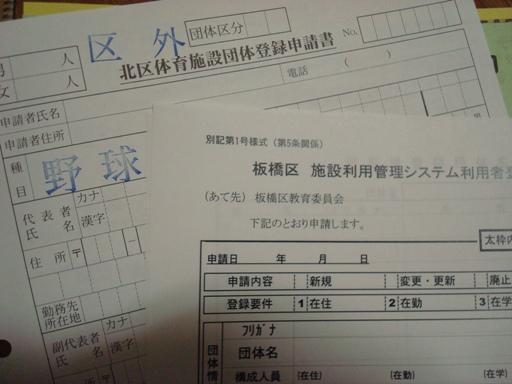 区外
団体区分
北区体育施設団体登録申請書
No.
男 人
女 人
電話 ( )
申請者氏名
申請者住所
種目
野球
代表者氏名
カナ
漢字
住所
〒
勤務先所在地
副代表者氏名
カナ
漢字
別記第1号様式(第5条関係)
板橋区 施設利用管理システム利用者登
(あて先) 板橋区教育委員会
下記のとおり申請します。
太枠内
申請日 年 月 日
申請内容 新規 変更・更新 廃止
登録要件 1 在住 2 在勤 3 在学
フリガナ
団体名
団体情
構成人員 (在住) (在勤) (在学)